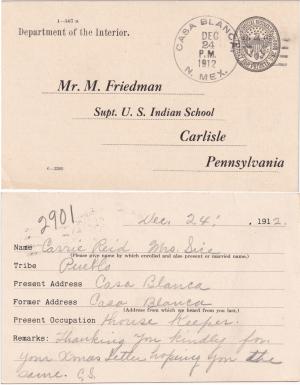 1—567 a
Department of the Interior.
CASA BLANCA
DEC
24
P.M.
1912
N. MEX.
Mr. M. Friedman
Supt. U. S. Indian School
Carlisle
Pennsylvania
2901
Dec. 24', 1912.
Name Carrie Reid Mrs. Sice
(Please give name by which enrolled and also present or married name.)
Tribe Pueblo
Present Address Casa Blanca
Former Address Casa Blanca
(Address from which we heard from you last.)
Present Occupation House Keeper.
Remarks: Thanking You kindly for
Your Xmas letter hoping You the
same. C.S.